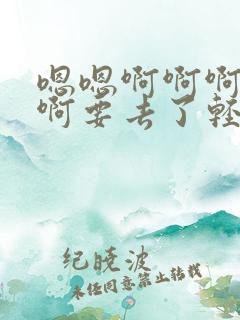 嗯嗯啊啊啊
啊要去了轻
纪晓波
未经同意禁止转载